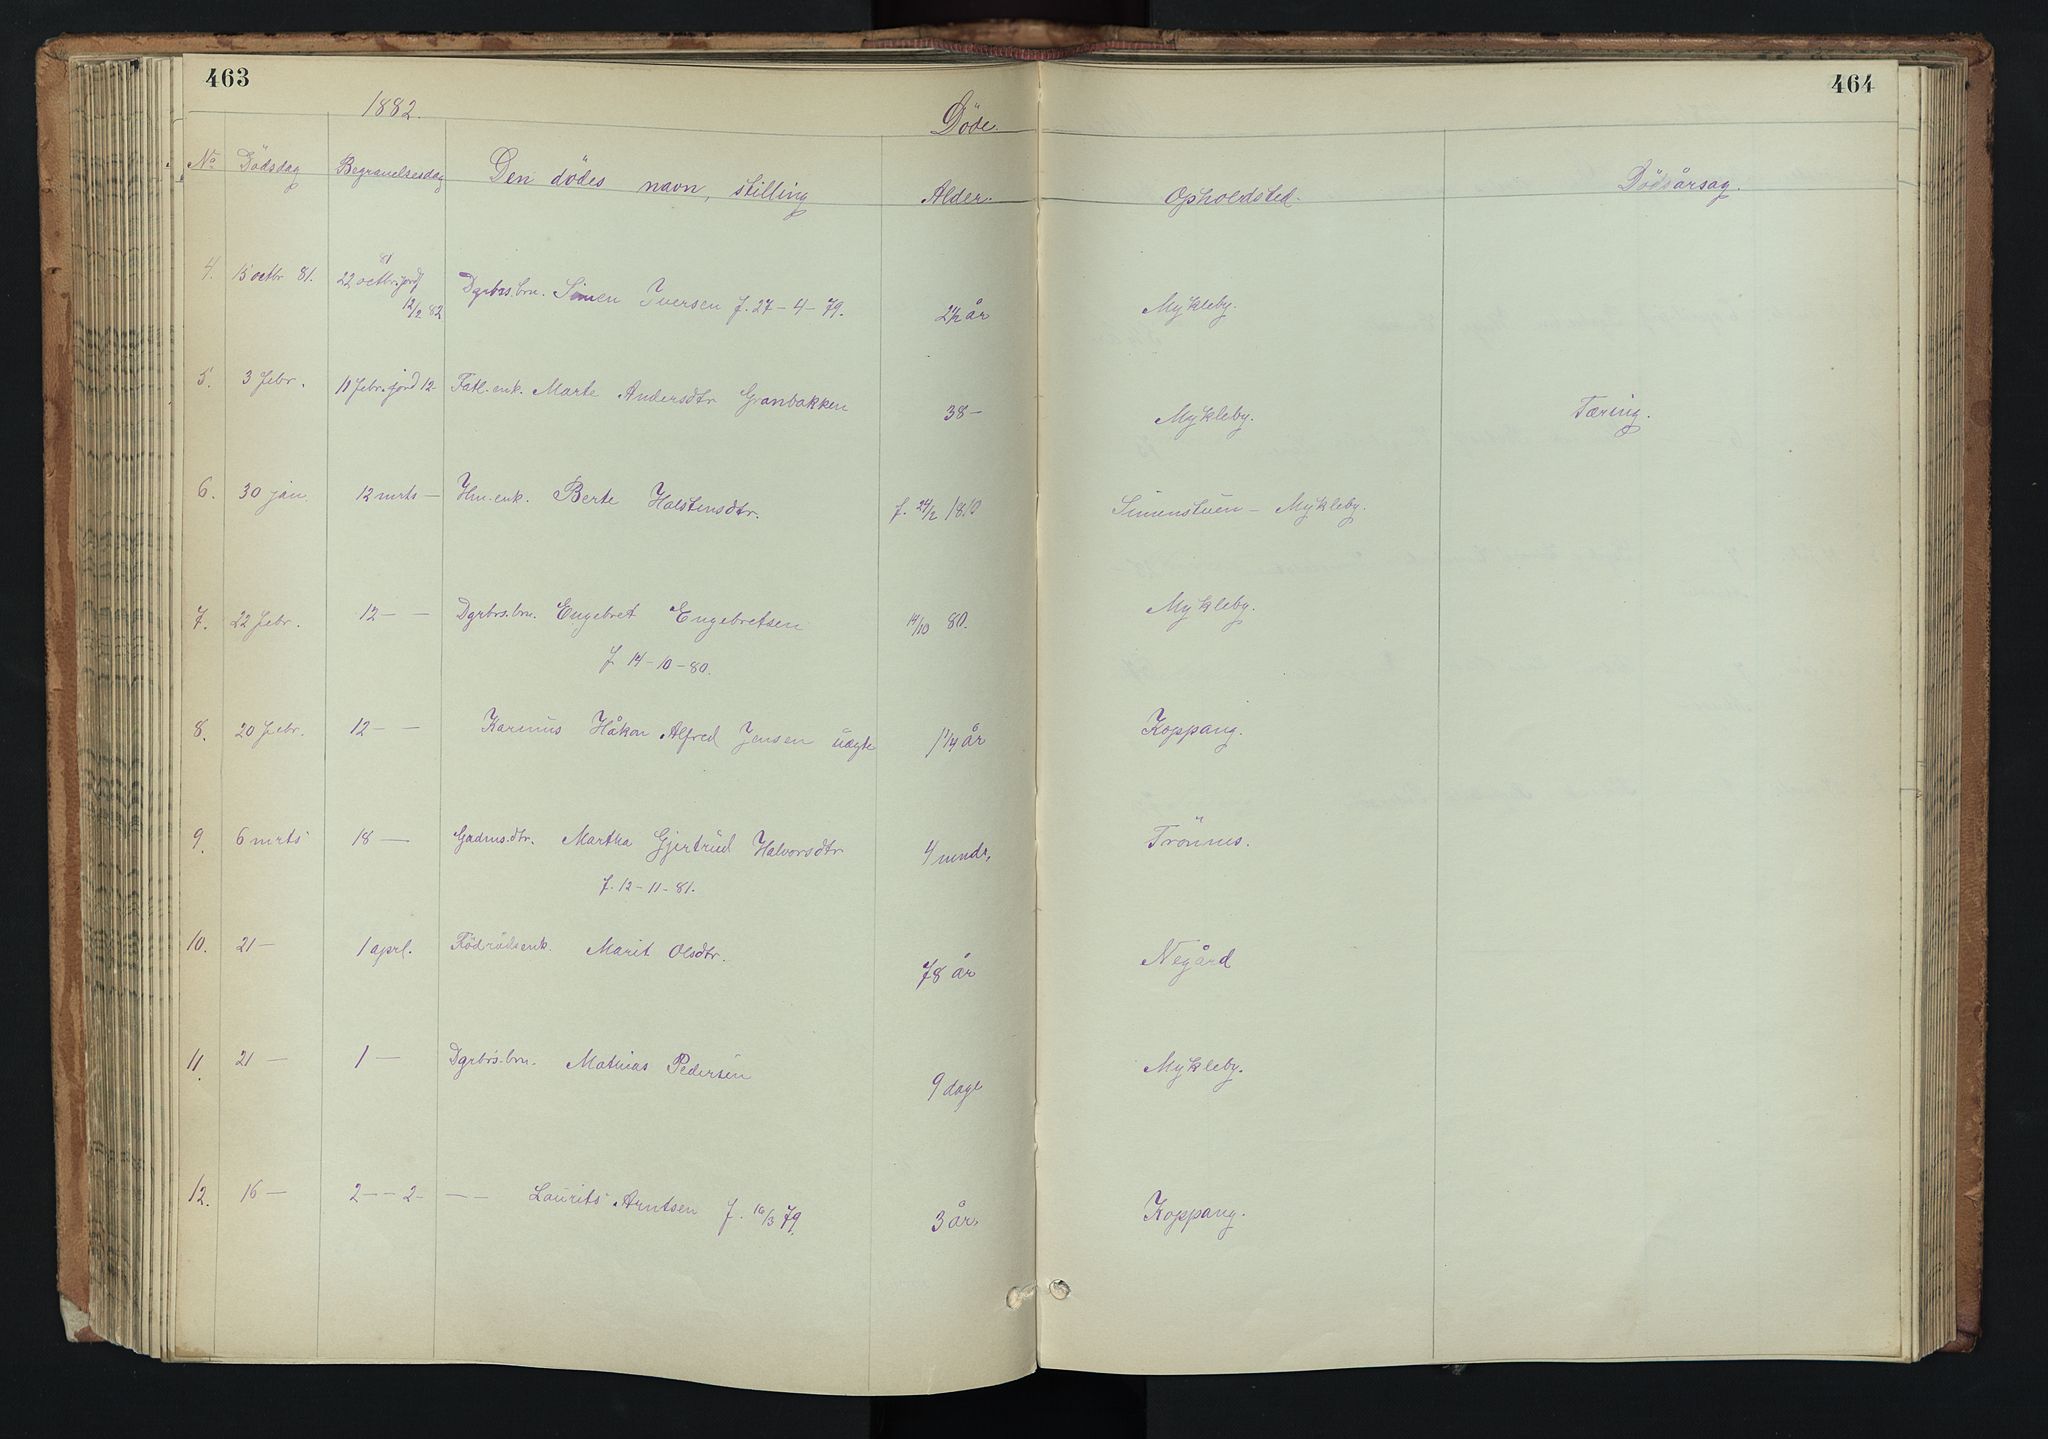 463
464
1882.
Döde.
No Dödsdag Begravelsesdag Den dödes navn, stilling Alder. Opholdsted. Dödsårsag.
81
4. 15 octbr 81. 22 octbr. jord Dgrbrs.brn. Simen Iversen f. 27-4-79. 2 1/2 år Mykleby.
12/2 82
5. 3 febr. 11 febr. jord 12 Fatl.enk. Marte Andersdtr Granbakken 38 - Mykleby. Tæring.
6. 30 jan 12 mrts - Hm.enk. Berte Halstensdtr. f. 24/2 1810 Simenstuen - Mykleby.
7. 22 febr. 12 - - Dgrbrs.brn. Engebret Engebretsen 14/10 80. Mykleby.
f. 14-10-80.
8. 20 febr. 12 - - Karenus Håkon Alfred Jensen uægte 1 1/4 år Koppang.
9. 6 mrts 18 - Gadms.dtr. Martha Gjertrud Halvorsdtr 4 mndr. Trönnes.
f. 12-11-81.
10. 21 - 1 aprl. Födrådsenk. Marit Olsdtr. 78 år Negård
11. 21 - 1 - Dgrbrs.brn. Mathias Pedersen 9 dage Mykleby.
12. 16 - 2 - - 2 - - - Laurits Arntsen f. 16/3 79. 3 år. Koppang.